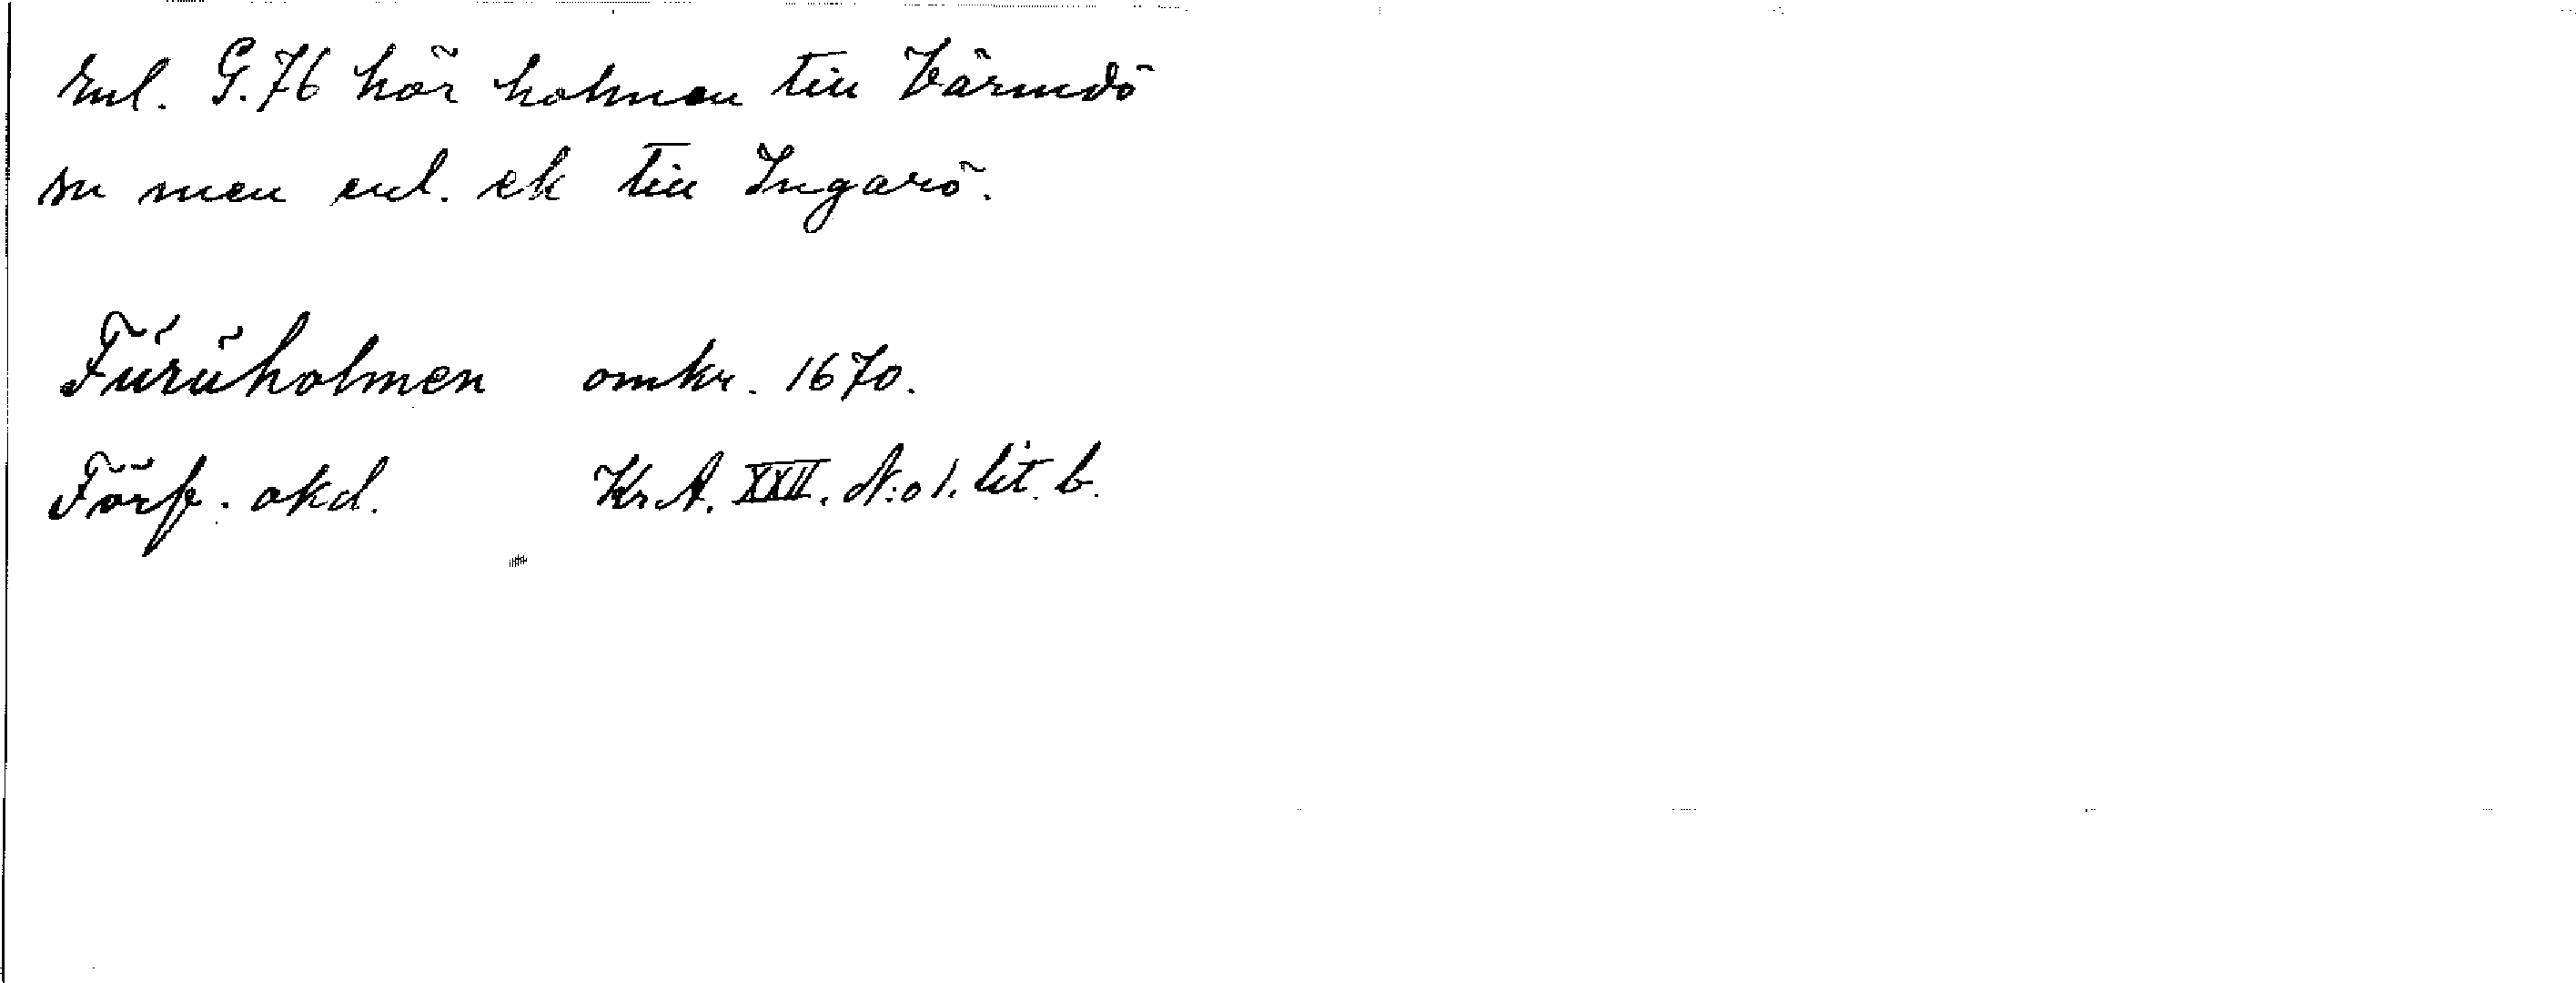 Enl. G.76 hör holmen till Värmdö
sn men enl. ek till Ingarö.
Furuholmen omkr. 1670.
Förf. okd. Kr.A. XXII. N:o 1. lit. b.